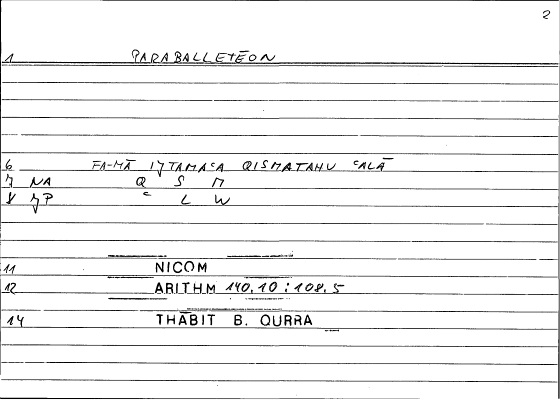 2
1 PARABALLETĒON
6 FA-MĀ IJTAMAʿA QISMATAHU ʿALĀ
7 NA Q S M
8 JP ʿ L W
11 NICOM
12 ARITHM 140,10 : 108,5
14 THĀBIT B. QURRA